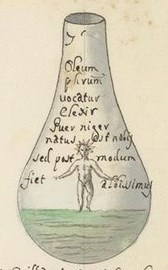 Oleum
phrum
vocatur
Elexir
Puer niger
natus est nobis
sed post modum
fiet albissimus